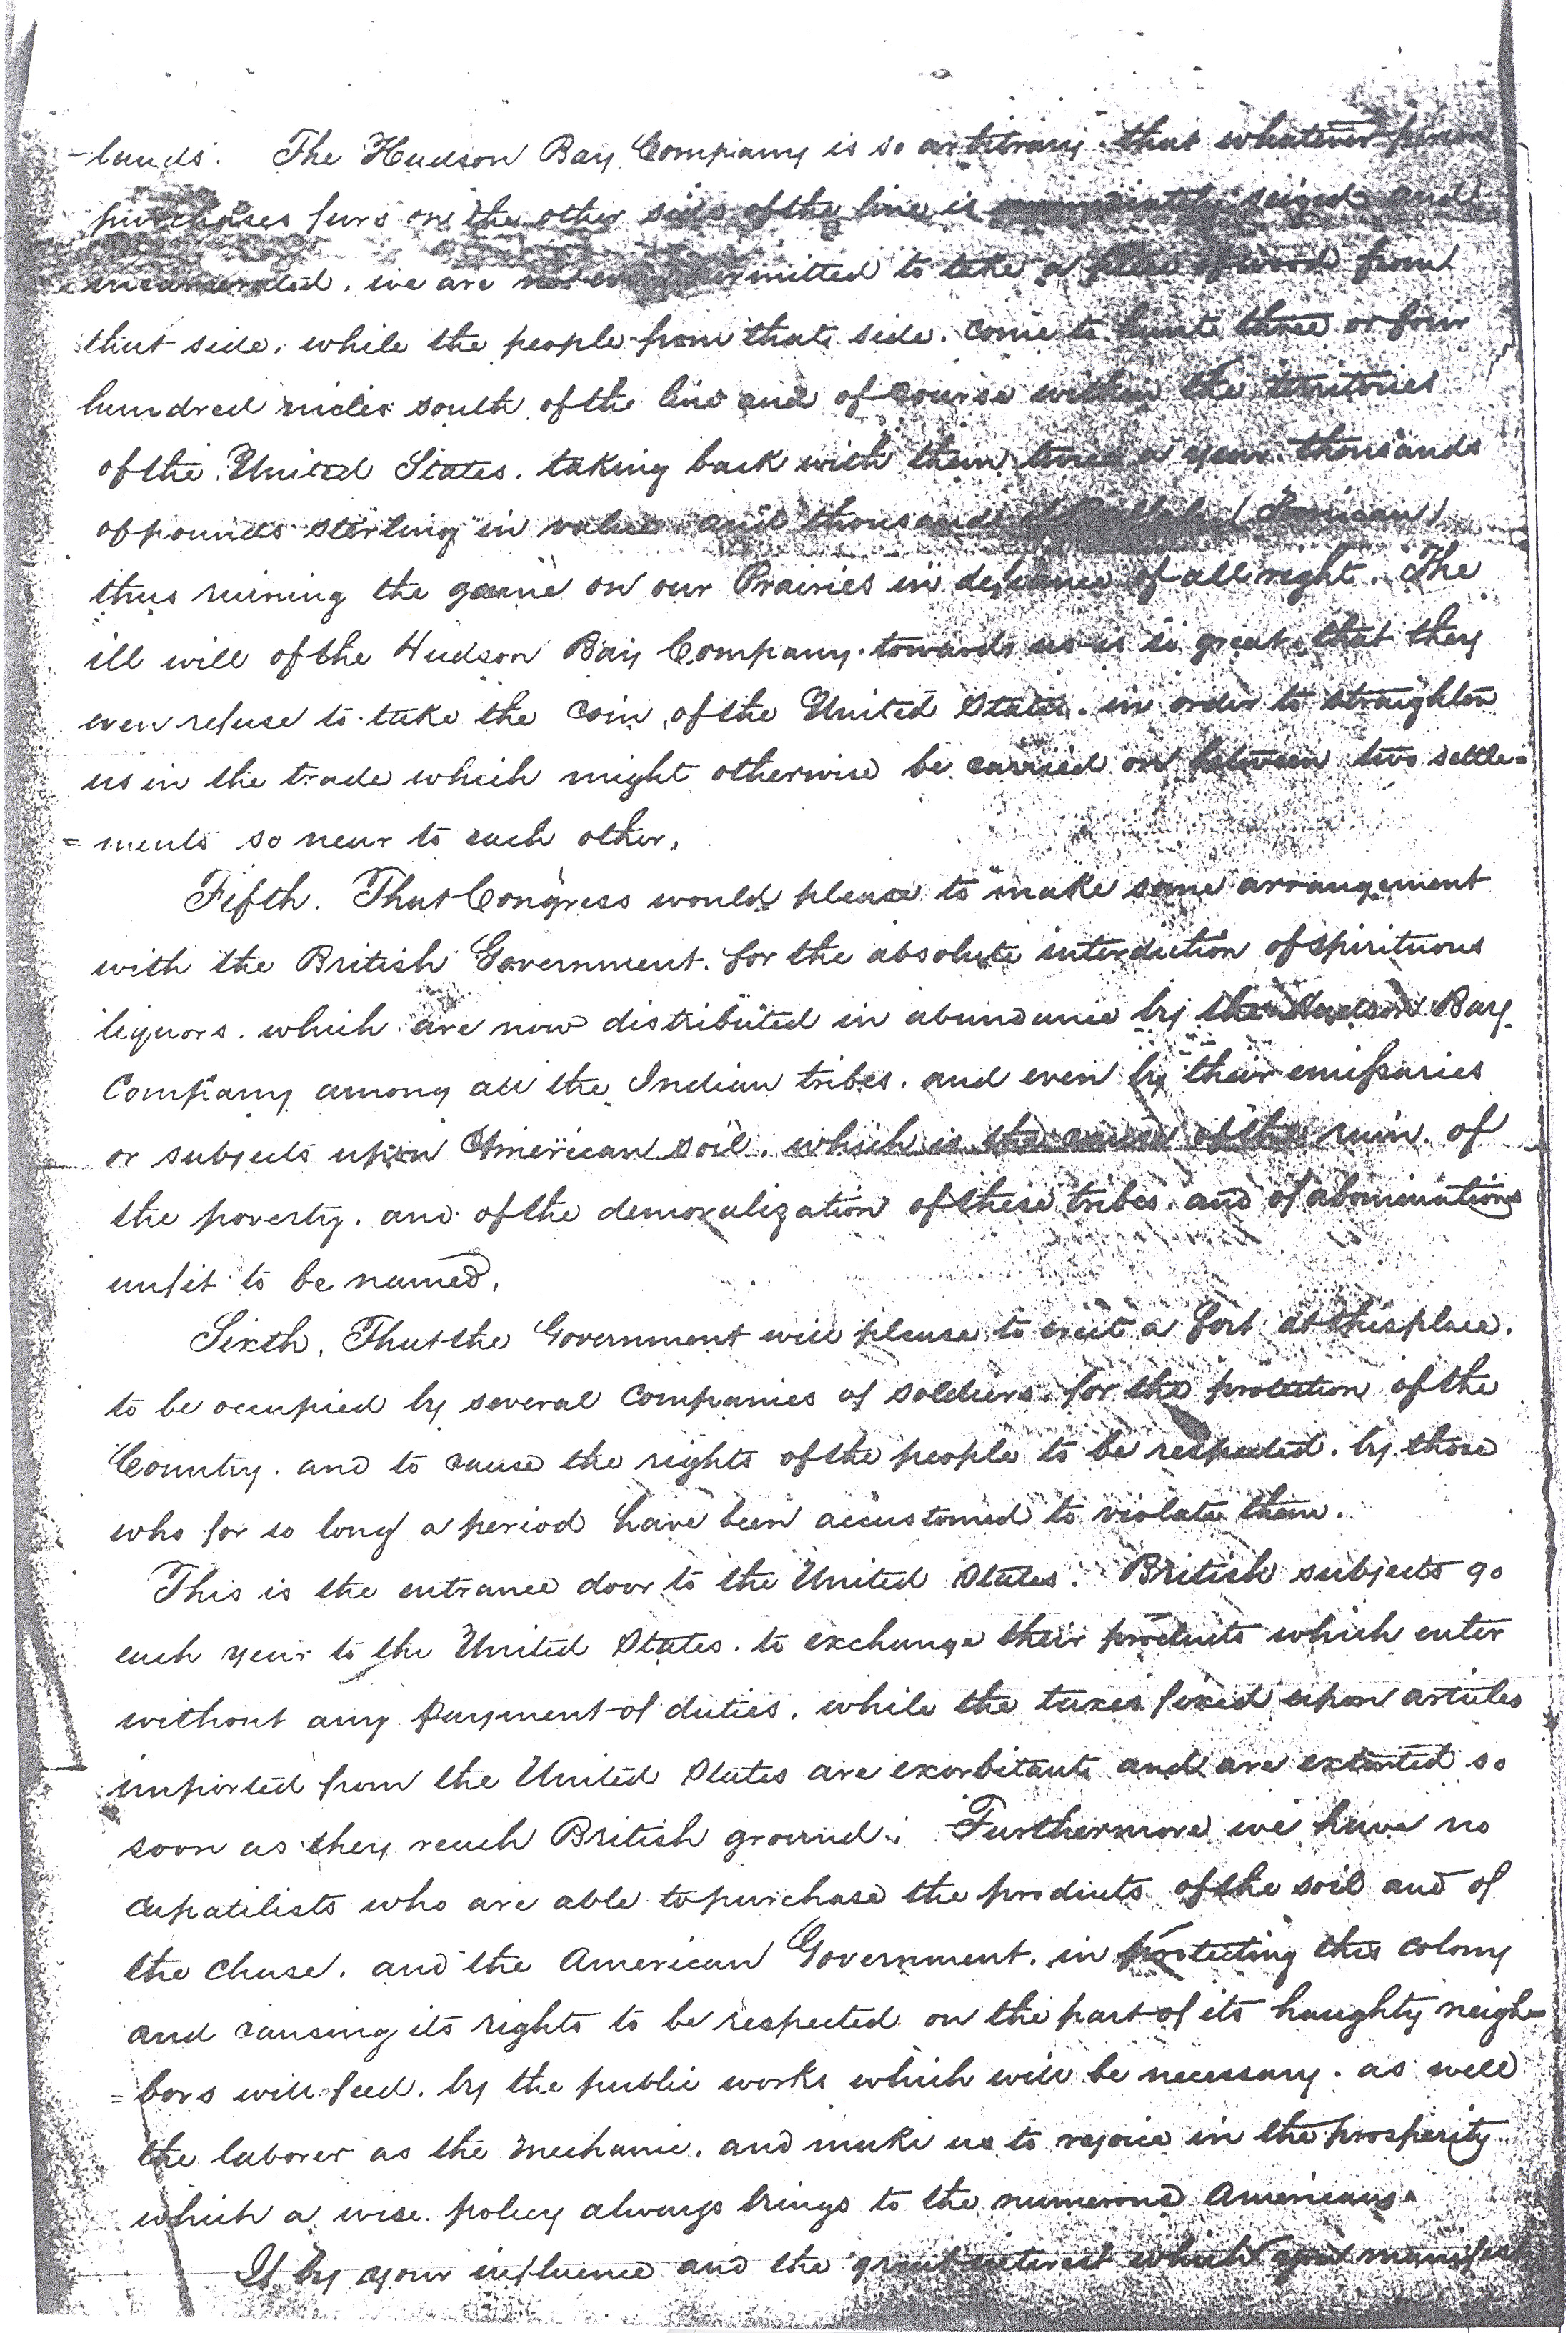 -lands. The Hudson Bay Company is so arbitrary that whatever person
purchases furs on the other side of the line is immediately seized and
incarcerated. we are not even permitted to take a piece of wood from
that side, while the people from that side. come to hunt three or four
hundred miles south of the line and of course within the territories
of the United States. taking back with them twice a year thousands
of pounds sterling in value and thousands of
thus ruining the game on our Prairies in defiance of all right. The
ill will of the Hudson Bay Company towards us is so great that they
even refuse to take the coin of the United States. in order to straighten
us in the trade which might otherwise be carried on between two settle=
=ments so near to each other.
Fifth. That Congress would please to make some arrangement
with the British Government. for the absolute interdiction of spirituous
liquors. which are now distributed in abundance by the Hudson Bay
Company among all the Indian tribes. and even by their emissaries
or subjects upon American soil. which is the cause of the ruin. of
the poverty. and of the demoralization of these tribes. and of abominations
unfit to be named.
Sixth. That the Government will please to erect a fort at this place.
to be occupied by several companies of soldiers. for the protection of the
Country. and to cause the rights of the people to be respected. by those
who for so long a period have been accustomed to violate them.
This is the entrance door to the United States. British subjects go
each year to the United States. to exchange their products which enter
without any payment of duties. while the taxes fixed upon articles
imported from the United States are exorbitant and are extorted so
soon as they reach British ground. Furthermore we have no
capatilists who are able to purchase the products of the soil and of
the chase. and the American Government. in protecting this colony
and causing its rights to be respected on the part of its haughty neigh=
=bors will feed. by the public works which will be necessary. as well
the laborer as the mechanic. and make us to rejoice in the prosperity
which a wise policy always brings to the numerous Americans.
If by your influence and the great interest which you manifest